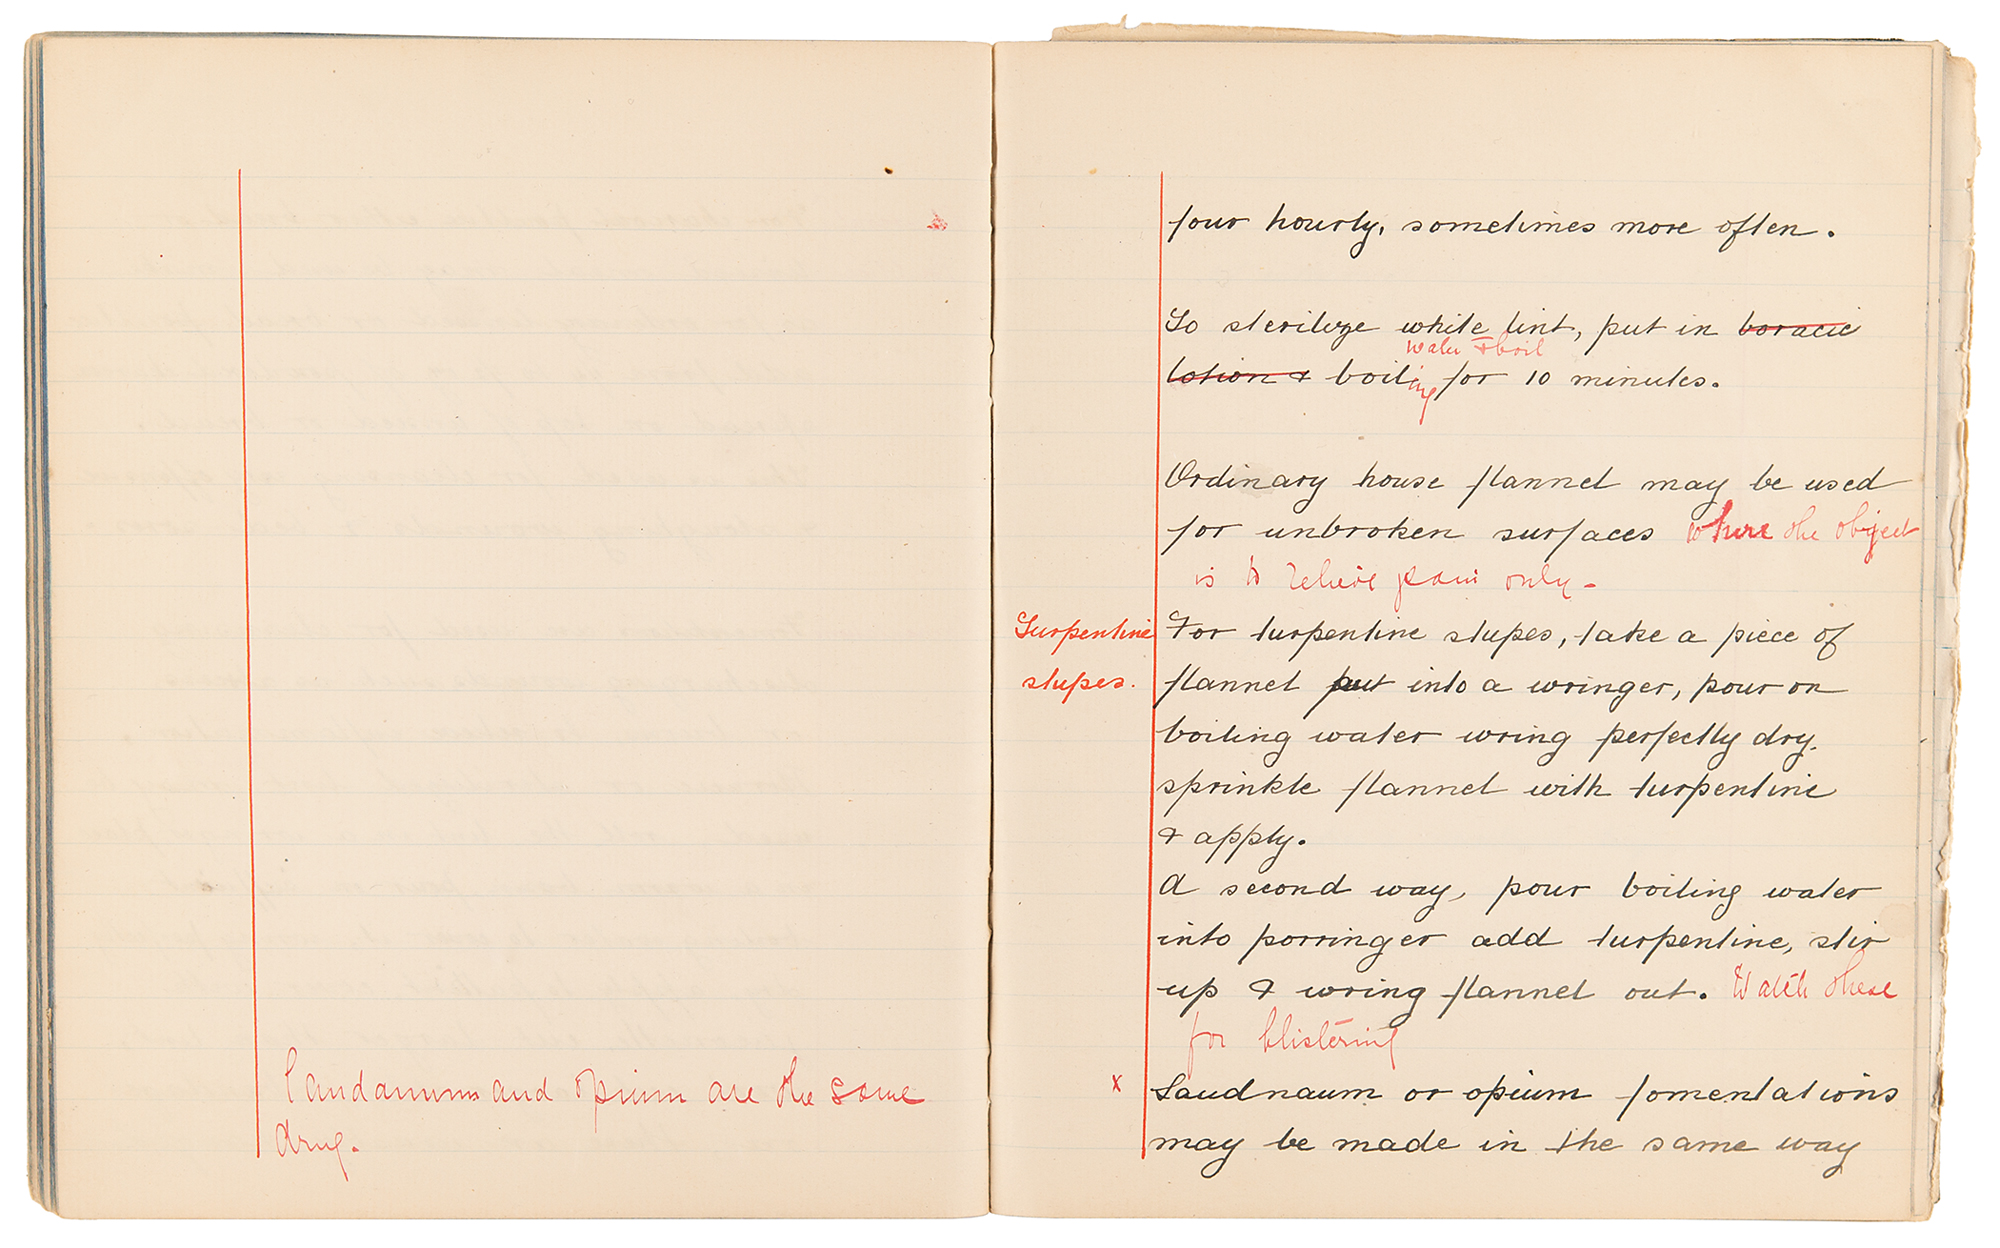 Laudanum and opium are the same
drug.
four hourly, sometimes more often.
To sterilize white lint, put in boracic
water & boil
lotion & boiling for 10 minutes.
Ordinary house flannel may be used
for unbroken surfaces where the object
is to relieve pain only -
Turpentine For turpentine stupes, take a piece of
stupes. flannel put into a wringer, pour on
boiling water wring perfectly dry.
sprinkle flannel with turpentine
& apply.
A second way, pour boiling water
into porringer add turpentine, stir
up & wring flannel out. Watch these
for blistering
x Laudnaum or opium fomentations
may be made in the same way